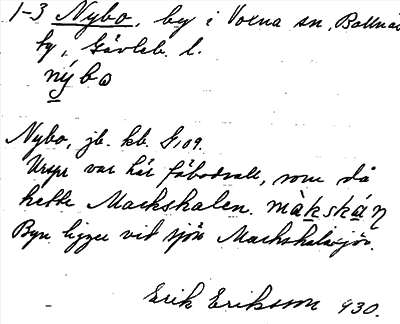 1-3 Nybo, by i Voxna sn, Bollnäs
ty, Gävleb. l.
nýbo
Nybo, jb. kb. S, 09.
Urspr var här fäbodvall, som då
hette Mackskalen. màkskáη
Byn ligger vid sjön Mackskalssjön.
Erik Eriksson 930.